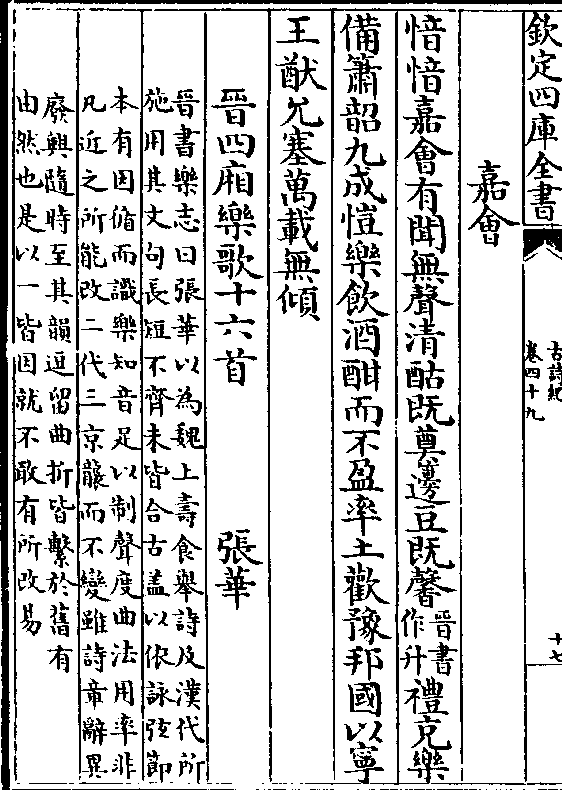 欽定四庫全書
古詩紀
卷四十九
十七
嘉會
愔愔嘉會有聞無聲清酤既奠邊豆既馨
晉書
作升
禮充樂
備簫韶九成愷樂飲酒酣而不盈率土歡豫邦國以寧
王猷允塞萬載無傾
晉四廂樂歌十六首
張華
晉書樂志曰張華以為魏上壽食舉詩及漢代所
施用其文句長短不齊未皆合古盖以依詠弦節
本有因循而識樂知音足以制聲度曲法用率非
凡近之所能改二代三京襲而不變雖詩章辭異
廢興隨時至其韻逗留曲折皆繫於舊有
由然也是以一皆因就不敢有所改易